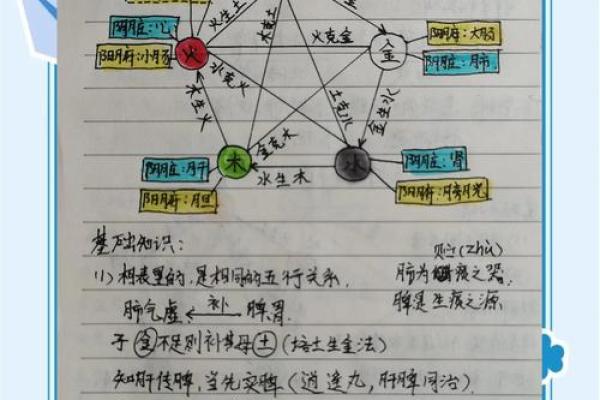 火生土
木克土
阴脏：心
阳府：小肠
火
火克金
金
阳府：大肠
阴脏：肺
水克火
木生火
土克水
金生水
金克木
木
水
水生木
阴脏：肝
阳府：胆
阴脏：肾
阳府：膀胱
基础知识：
(1) 相表里的，是相同的五行关系.
肺气虚 ←补 脾胃.
子(金)不足则补其母(土)(培土生金法)
知肝传脾，当先实脾(逍遥丸，肝脾同治).
贮(zhù)
肺为贮痰之器.
脾是生痰之源